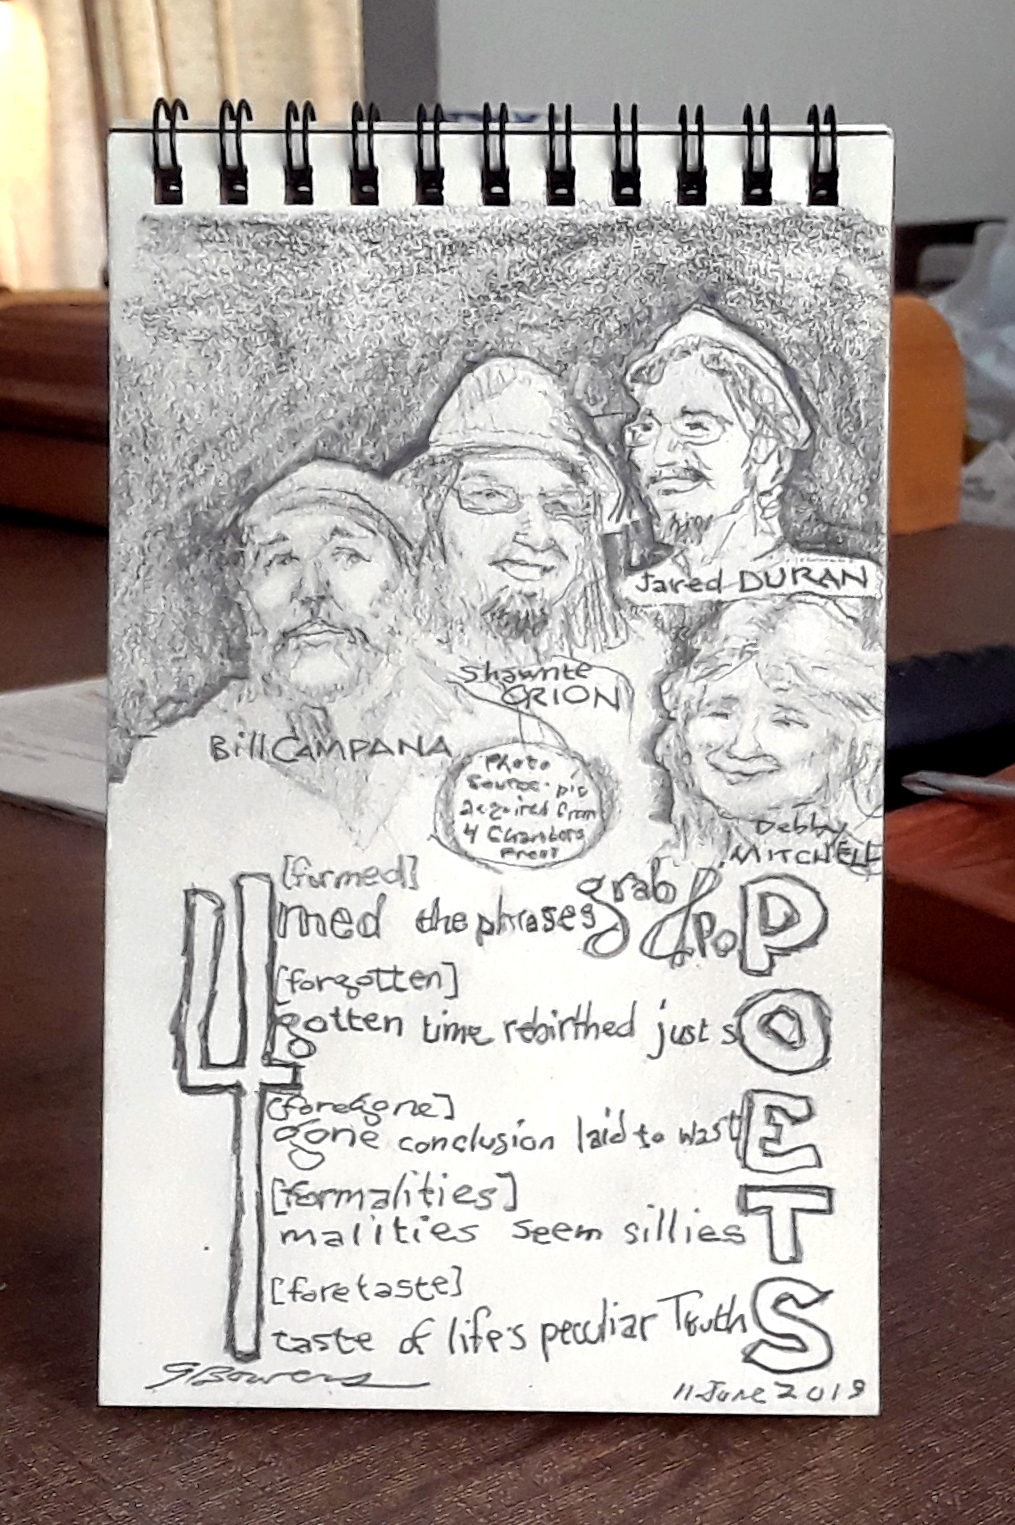 Jared DURAN
Shawnte
ORION
Bill CAMPANA
Photo
Source: pic
acquired from
4 Chambers
Press
Debby
MITCHELL
4
[formed]
med the phrases grab & poP
[forgotten]
gotten time rebirthed just sO
[foregone]
gone conclusion laid to wastE
[formalities]
malities seem silliesT
[foretaste]
taste of life's peculiar TruthS
GBowers
11 June 2019